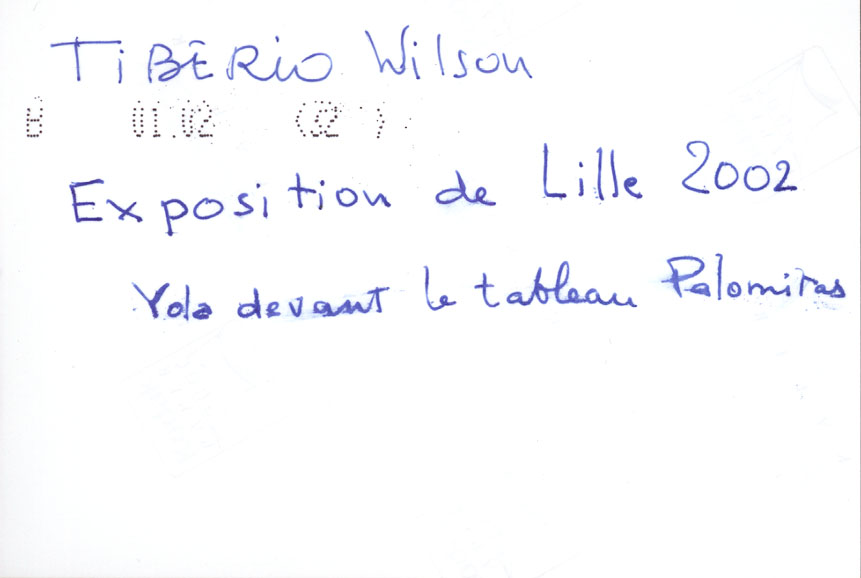 TiBĒRio Wilson
01.02 (32 )
Exposition de Lille 2002
Yola devant le tableau Palomitas